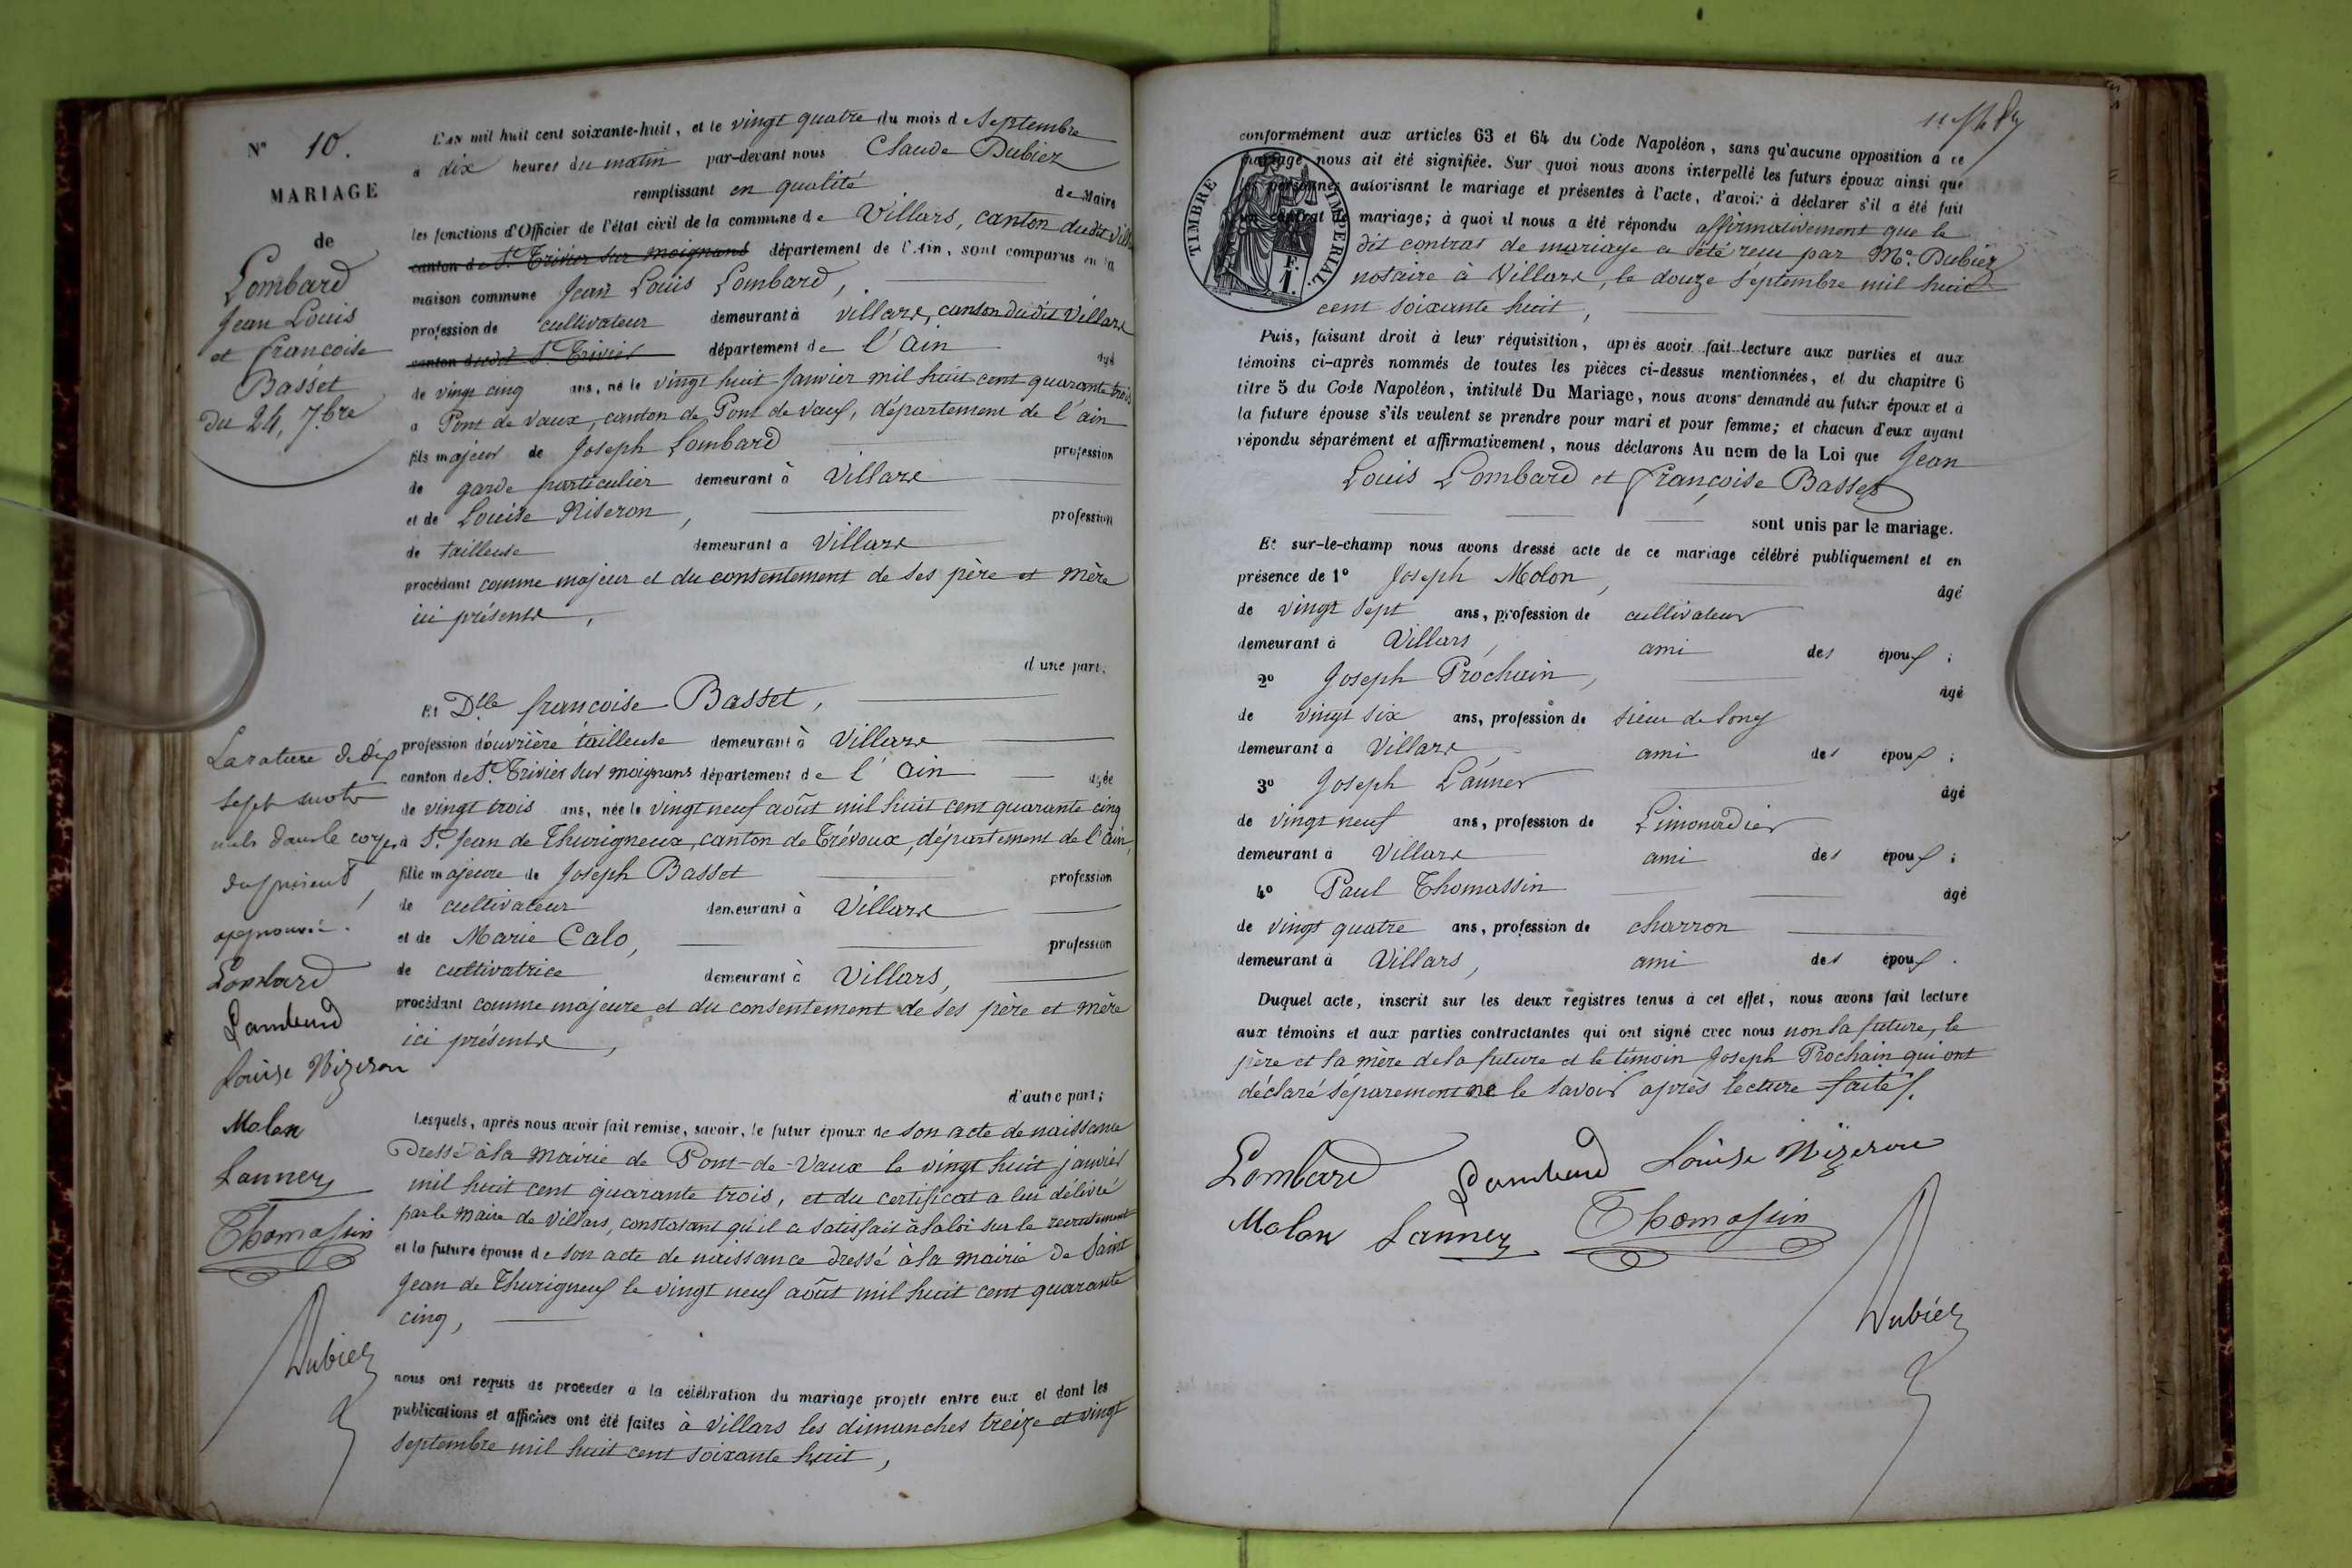 N° 10.
MARIAGE
de
Lombard
Jean Louis
et françoise
Basset
du 24, 7.bre
L'AN mil huit cent soixante-huit, et le vingt quatre du mois de Septembre
à dix heures du matin par-devant nous Claude Dubiez
remplissant en qualité de Maire
les fonctions d'Officier de l'état civil de la commune de Villars, canton dudit Villars
canton de St. Trivier sur moignans département de l'Ain, sont comparus en la
maison commune Jean Louis Lombard,
profession de cultivateur demeurant à villars, canton dudit Villars
canton dudit St. Trivier département de l'Ain âgé
de vingt cinq ans, né le vingt huit Janvier mil huit cent quarante trois
à Pont de vaux, canton de Pont de vaux, département de l'ain
fils majeur de Joseph Lombard profession
de garde particulier demeurant à Villars
et de Louise Niseron, profession
de tailleuse demeurant à Villars
procédant comme majeur et du consentement de ses père et mère
ici présents,
d'une part.
Et Dlle françoise Basset,
profession d'ouvrière tailleuse demeurant à Villars
canton de St. Trivier sur moignans département de l'Ain agée
de vingt trois ans, née le vingt neuf août mil huit cent quarante cinq
à St. Jean de Thurigneux, canton de Trévoux, département de l'ain,
fille majeure de Joseph Basset profession
de cultivateur demeurant à Villars
et de Marie Calo, profession
de cultivatrice demeurant à Villars,
procédant comme majeure et du consentement de ses père et mère
ici présents,
d'autre part;
Lesquels, après nous avoir fait remise, savoir, le futur époux de son acte de naissance
Dressé à la mairie de Pont-de-Vaux le vingt huit janvier
mil huit cent quarante trois, et du certificat a lui délivré
par le maire de Villars, constatant qu'il a satisfait à la loi sur le recrutement
et la future épouse de son acte de naissance dressé à la mairie de Saint
Jean de Thurigneux le vingt neuf août mil huit cent quarante
cinq,
nous ont requis de procéder à la célébration du mariage projeté entre eux et dont les
publications et affiches ont été faites à Villars les dimanches treize et vingt
septembre mil huit cent soixante huit,
La rature de dix
sept mots
nuls dans le corps
du présent,
approuvée.
Lombard
Lombard
Louise Nizeron
Molon
Lanner
Thomassin
Dubiez
conformément aux articles 63 et 64 du Code Napoléon, sans qu'aucune opposition à ce
mariage nous ait été signifiée. Sur quoi nous avons interpellé les futurs époux ainsi que
les personnes autorisant le mariage et présentes à l'acte, d'avoir à déclarer s'il a été fait
un contrat de mariage; à quoi il nous a été répondu affirmativement que le
dit contrat de mariage a été reçu par Me. Dubiez
notaire à Villars, le douze Septembre mil huit
cent soixante huit,
TIMBRE IMPERIAL
F.
1.
Puis, faisant droit à leur réquisition, après avoir fait lecture aux parties et aux
témoins ci-après nommés de toutes les pièces ci-dessus mentionnées, et du chapitre 6
titre 5 du Code Napoléon, intitulé Du Mariage, nous avons demandé au futur époux et à
la future épouse s'ils veulent se prendre pour mari et pour femme; et chacun d'eux ayant
répondu séparément et affirmativement, nous déclarons Au nom de la Loi que Jean
Louis Lombard et françoise Basset
sont unis par le mariage.
Et sur-le-champ nous avons dressé acte de ce mariage célébré publiquement et en
présence de 1° Joseph Molon, âgé
de vingt sept ans, profession de cultivateur
demeurant à Villars, ami des époux;
2° Joseph Prochain, âgé
de vingt six ans, profession de sieur de long
demeurant à Villars, ami des époux;
3° Joseph Lanner âgé
de vingt neuf ans, profession de Limonadier
demeurant à Villars ami des époux;
4° Paul Thomassin âgé
de vingt quatre ans, profession de charron
demeurant à Villars, ami des époux.
Duquel acte, inscrit sur les deux registres tenus à cet effet, nous avons fait lecture
aux témoins et aux parties contractantes qui ont signé avec nous non la future, le
père et la mère de la future et le témoin Joseph Prochain qui ont
déclaré séparement ne le savoir après lecture faite.
Lombard Lombard Louise Nizeron
Molon Lanner Thomassin
Dubiez